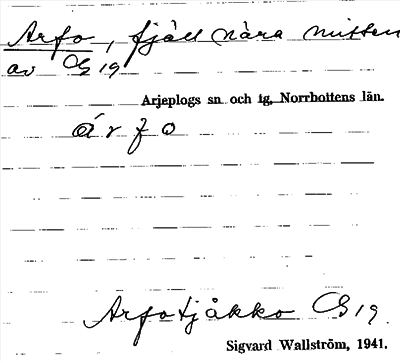 Arfo, fjäll nära mitten
av G 19
Arjeplogs sn och tg, Norrbottens län.
árfo
Arfotjåkko G 19.
Sigvard Wallström, 1941.